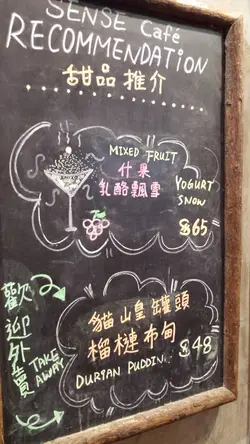 SENSE Café
RECOMMENDATION
甜品推介
MIXED FRUIT
什果
乳酪飄雪
YOGURT
SNOW
$65
歡迎外賣
TAKE
AWAY
貓山皇罐頭
榴槤布甸
DURIAN PUDDIN. $48